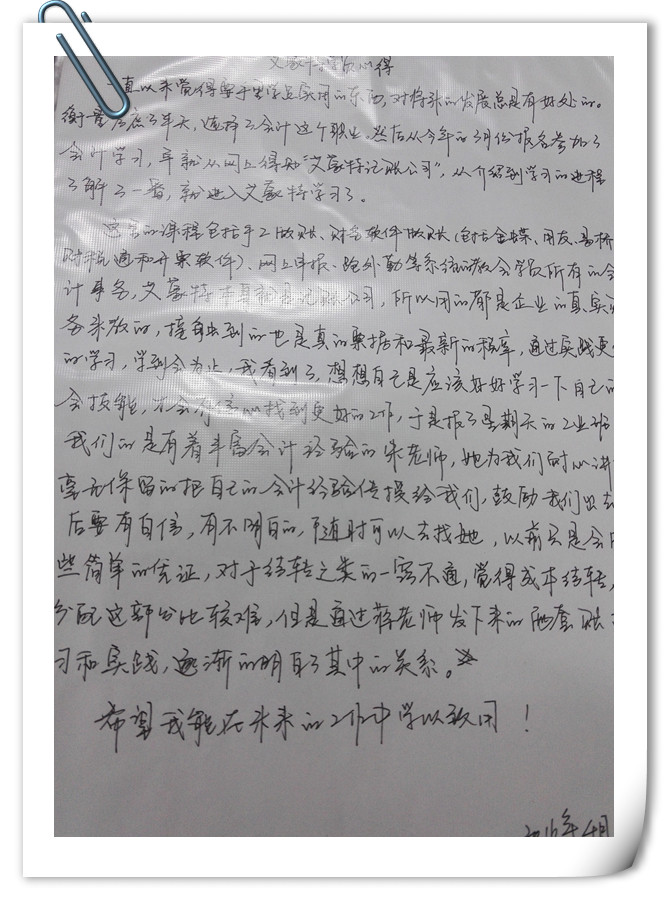 艾蒙特学员心得
一直以来觉得要于里学点实用的东西,对将来的发展总是有好处的。
衡量考虑了半天,选择了会计这个职业,然后从今年的3月份报名参加了
会计学习,早就从网上得知"艾蒙特记账公司",从介绍到学习的进程
了解了一番,就进入艾蒙特学习了。
这里的课程包括手工做账、财务软件做账(包括金蝶、用友、易桥
财税通和开票软件)、网上申报、跑外勤等系统的教会学员所有的会
计事务,艾蒙特本身就是记账公司,所以用的都是企业的真实
务来做的,接触到的也是真的票据和最新的程序,通过实践更
的学习,学到今为止,我看到了,想想自己是应该好好学习一下自己的
会技能,才会有信心找到更好的工作,于是报了星期天的工业班
我们的是有着丰富会计经验的朱老师,她为我们耐心讲
毫无保留的把自己的会计经验传授给我们,鼓励我们出去
后要有自信,有不明白的,可随时可以去找她,以前只是会
些简单的凭证,对于结转之类的一窍不通,觉得成本结转,
分配这部分比较难,但是通过蒋老师发下来的两套账
习和实践,逐渐的明白了其中的关系。
希望我能在未来的工作中学以致用!
2016年4月